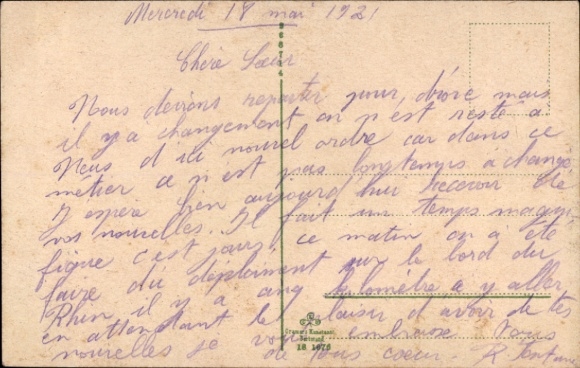 Mercredi 18 mai 1921
Chère Sœur
Nous devions repartir pour, mais
il y a changement on n'est resté a
Neuss d'ici nouvel ordre car dans ce
métier ce n'est pas longtemps à changé
J'espère bien aujourd'hui recevoir de
vos nouvelles. Il fait un temps magni
fique c'est jours, ce matin on a été
faire du déploiement sur le bord du
Rhin il y a cinq kilomètre a y aller
en attendant le plaisir d'avoir de tes
nouvelles je vous embrasse Vous
de tous cœur. R
Cramers Kunstanst.
Dortmund